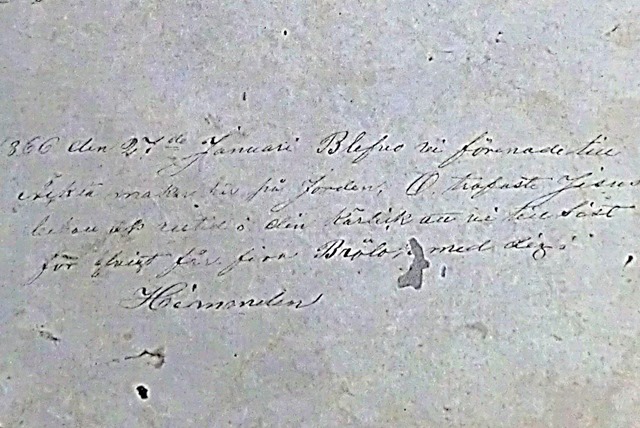 1866 den 27de Januari Blefvo vi förenade till
Äckta makar här på Jorden, O trofaste Jesus
bevara oss alltid i din Kärlek att vi till Sist
får Evigt får fira Bröllop med dig i
Himmelen